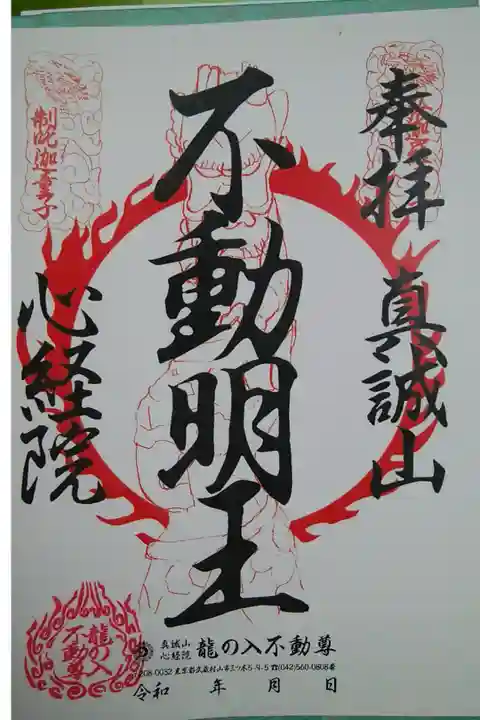 奉拝
真誠山
不動明王
心経院
制吒迦童子
龍の入
不動尊
真誠山
心経院
龍の入不動尊
208-0032 東京都武蔵村山市三ツ木5-9-5 ☎(042)560-0808番
令和 年 月 日